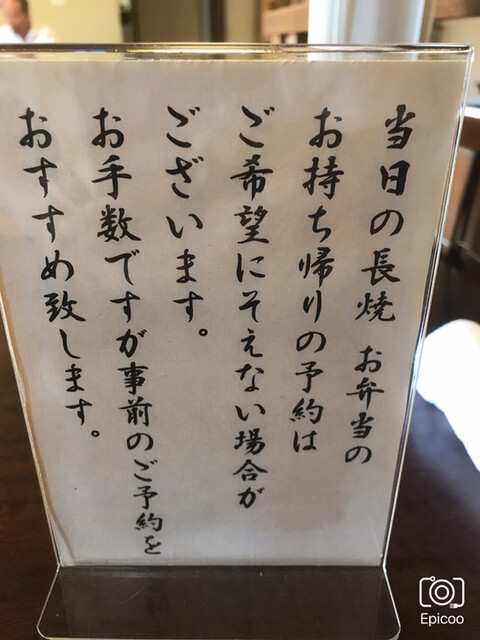 当日の長焼 お弁当の
お持ち帰りの予約は
ご希望にそえない場合が
ございます。
お手数ですが事前のご予約を
おすすめ致します。
Epicoo